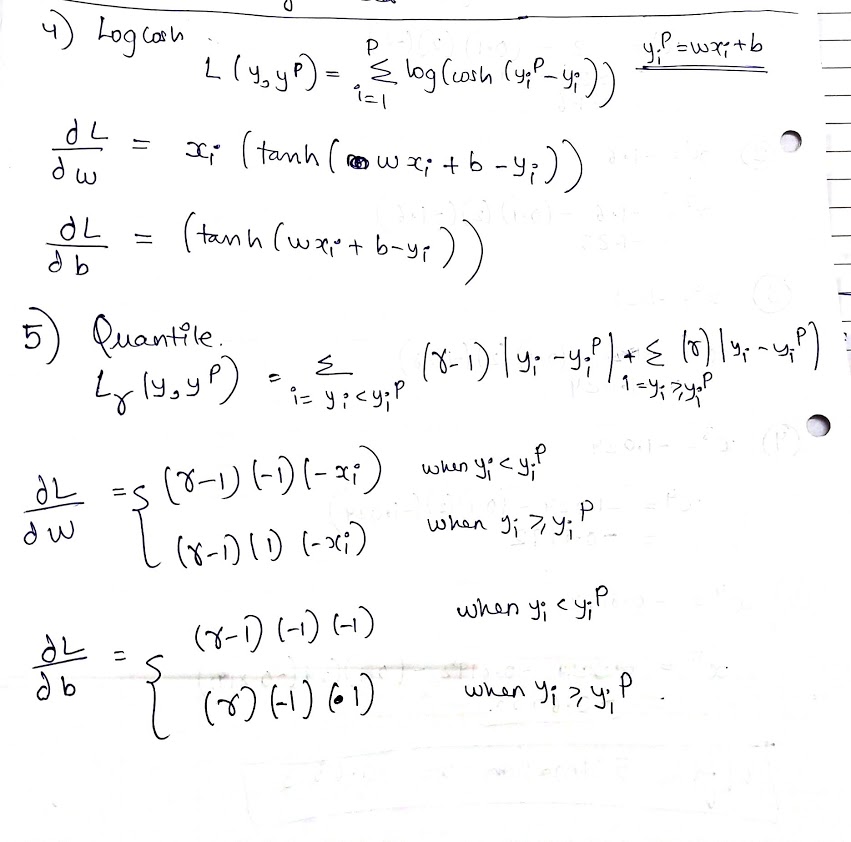 4) Logcosh
L(y, yᴾ) = Σ_{i=1}^{P} log(cosh(yᵢᴾ - yᵢ)) yᵢᴾ = wxᵢ + b
dL/dw = xᵢ (tanh(wxᵢ + b - yᵢ))
dL/db = (tanh(wxᵢ + b - yᵢ))
5) Quantile.
L_γ(y, yᴾ) = Σ_{i = yᵢ < yᵢᴾ} (γ-1) |yᵢ - yᵢᴾ| + Σ_{i = yᵢ ≥ yᵢᴾ} (γ) |yᵢ - yᵢᴾ|
dL/dw = { (γ-1) (-1) (-xᵢ) when yᵢ < yᵢᴾ
(γ-1) (1) (-xᵢ) when yᵢ ≥ yᵢᴾ
dL/db = { (γ-1) (-1) (-1) when yᵢ < yᵢᴾ
(γ) (-1) (1) when yᵢ ≥ yᵢᴾ.